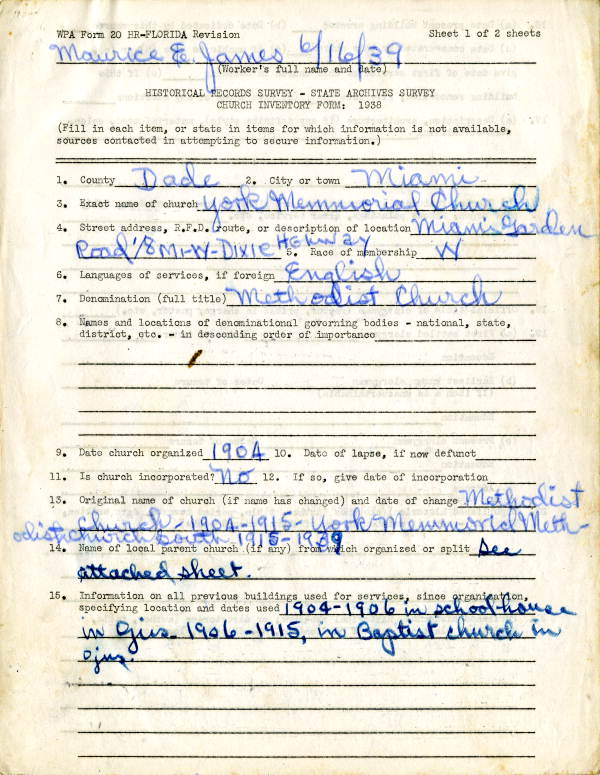 WPA Form 20 HR-FLORIDA Revision Sheet 1 of 2 sheets
Maurice E. James 6/16/39
(Worker's full name and date)
HISTORICAL RECORDS SURVEY - STATE ARCHIVES SURVEY
CHURCH INVENTORY FORM: 1938
(Fill in each item, or state in items for which information is not available,
sources contacted in attempting to secure information.)
1. County Dade 2. City or town Miami
3. Exact name of church York Memmorial Church
4. Street address, R.F.D. route, or description of location Miami Garden
Road 1/8 MI-W-DIXIE HGHWAY 5. Race of membership W
6. Languages of services, if foreign English
7. Denomination (full title) Methodist Church
8. Names and locations of denominational governing bodies - national, state,
district, etc. - in descending order of importance
9. Date church organized 1904 10. Date of lapse, if now defunct
11. Is church incorporated? No 12. If so, give date of incorporation
13. Original name of church (if name has changed) and date of change Methodist
Church - 1904-1915 - York Memmorial Meth-
odist church South 1915-1939
14. Name of local parent church (if any) from which organized or split See
attached sheet.
15. Information on all previous buildings used for services, since organization,
specifying location and dates used 1904-1906 in schoolhouse
in Ojus 1906-1915, in Baptist church in
Ojus.